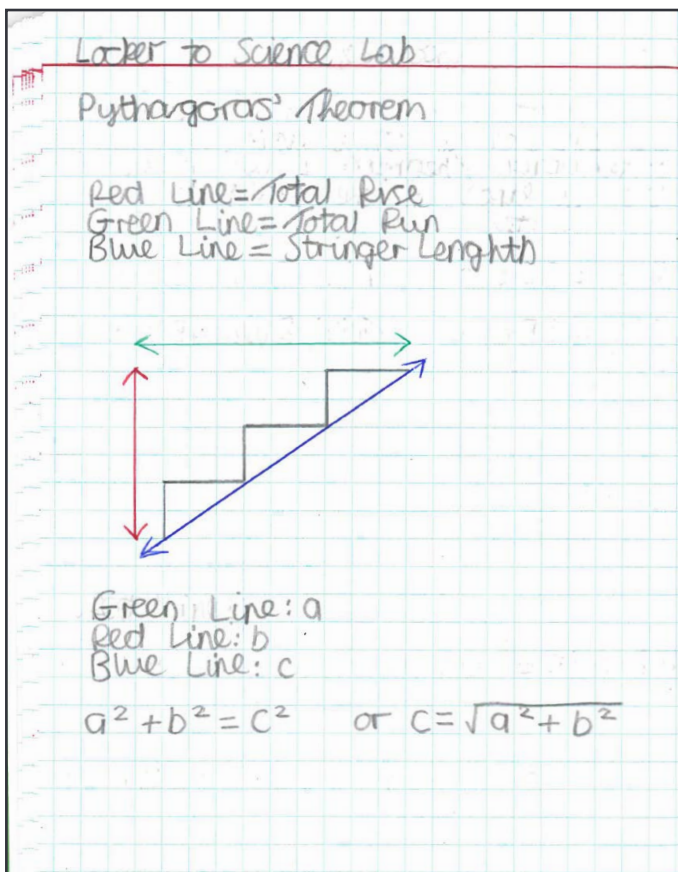 Locker to Science Lab
Pythagoras' Theorem
Red Line = Total Rise
Green Line = Total Run
Blue Line = Stringer Lenghth
Green Line: a
Red Line: b
Blue Line: c
a² + b² = c² or c = √a² + b²